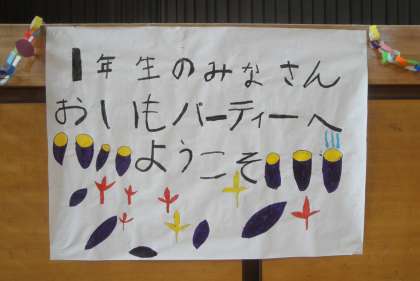 1年生のみなさん
おいもパーティーへ
ようこそ